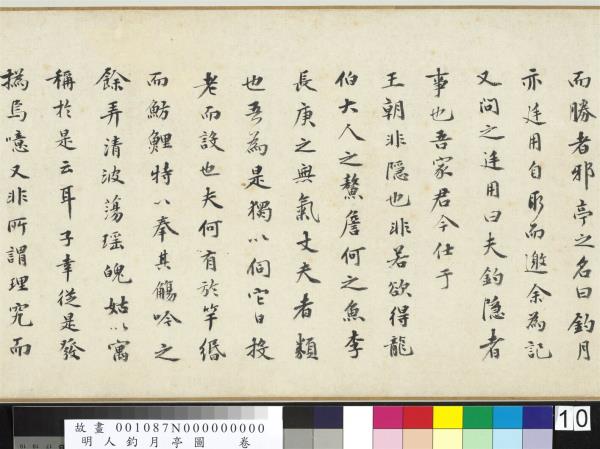 而勝者邪亭之名曰釣月
亦廷用自取而邀余為記
又問之廷用曰夫釣隱者
事也吾家君今仕于
王朝非隱也非若欲得龍
伯大人之鰲詹何之魚李
長庚之無氣丈夫者類
也吾為是獨以伺它日投
老而設也夫何有於竿緡
而魴鯉特以奉其觴吟之
餘弄清波蕩瑤魄姑以寓
稱於是云耳予幸從是發
搞焉噫又非所謂理究而
故畫 001087N000000000
明人釣月亭圖 卷
10